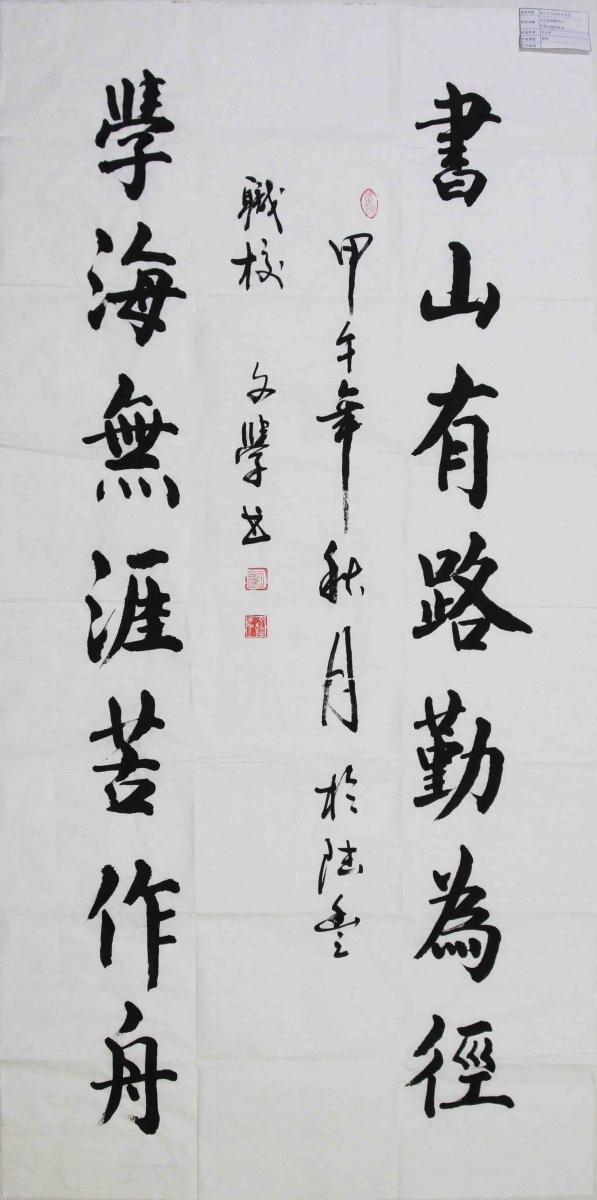 書山有路勤為徑
甲午年秋月於陆豐
職校 文學书
學海無涯苦作舟